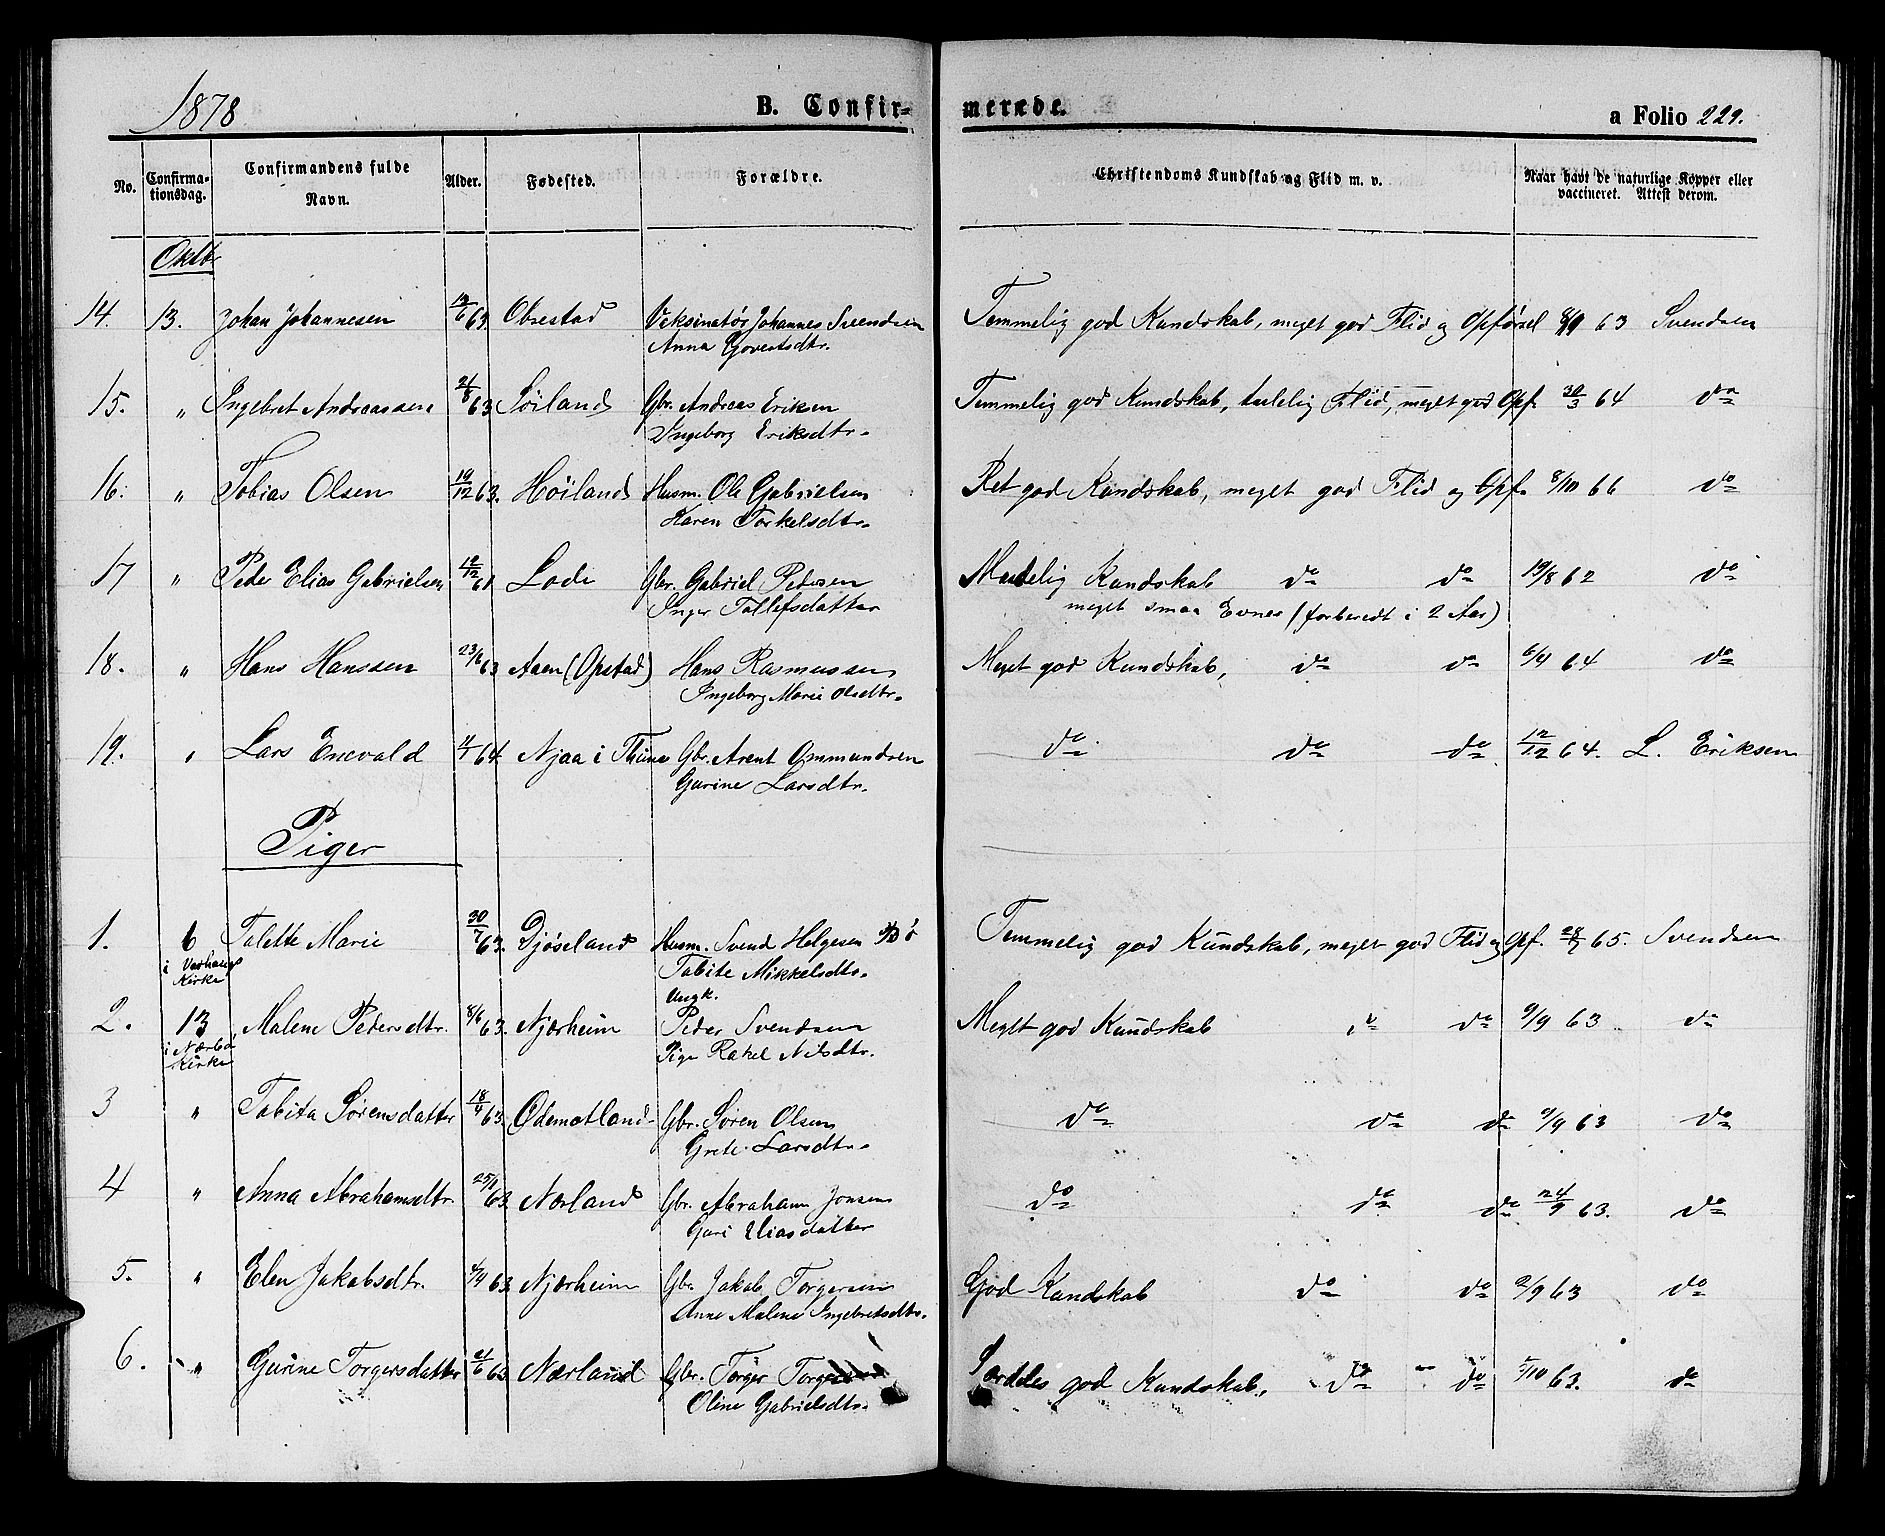 1878 B. Confirmerede. a Folio 229.
No. Confirmationsdag. Confirmandens fulde Navn. Alder. Fødested. Forældre. Christendoms Kundskab og Flid m. v. Naar havt de naturlige Kopper eller vaccineret. Attest derom.
Oktbr
14. 13. Johan Johannesen 13/6 63 Obrestad Veksinatør Johannes Sveendsen Temmelig god Kundskab, meget god Flid og Opførsel 8/9 63 Svendsen
Anna Govertsdtr.
15. " Ingebret Andreassen 21/8 63 Söiland Gbr. Andreas Eriksen Temmelig god Kundskab, taalelig Flid, meget god Opf. 30/3 64 do
Ingeborg Eriksdtr.
16. " Tobias Olsen 19/12 63. Höiland Husm. Ole Gabrielsen Ret god Kundskab, meget god Flid og Opf. 8/10 66 do
Karen Torkelsdtr.
17 " Peder Elias Gabrielsen /12 61 Lode Gbr. Gabriel Pedersen Maadelig Kundskab do do 19/8 62 do
Inger Tollefsdatter meget smaa Evner (forberedt i 2 Aar)
18. " Hans Hanssen 23/6 63 Aaen (Opstad) Hans Rasmussen Meget god Kundskab, do do 6/9 64 do
Ingeborg Marie Olsdtr.
19. " Lars Enevald 64. Njaa i Thime Gbr. Arent Ommundsen do do do 12/12 64. L. Eriksen
Gurine Larsdtr.
Piger
1. 6 Talette Marie 30/7 63. Djöseland Husm. Svend Helgesen Temmelig god Kundskab, meget god Flid og Opf. 28/7 65. Svendsen
i Varhaug Kirke Tabite Mikkelsdtr.
2. 13 Malene Pedersdtr. 8/6 63. Njærheim Ungk. Peder Svendsen Meget god Kundskab do do 9/9 63 do
i Nærbø Kirke Pige Rakel Nilsdtr.
3 " Tabita Sørensdatter 18/4 63. Ödemotland Gbr. Sören Olsen do do do 9/9 63 do
Grete Larsdtr.
4 " Anna Abrahamsdtr. 25/1 63. Nærland Gbr. Abraham Jonsen do do do 24/9 63. do
Guri Eliasdatter
5. " Elen Jakobsdtr. 4/4 63. Njærheim Gbr. Jakob Torgersen God Kundskab do do 9/9 63 do
Anne Malene Ingebretsdtr.
6. " Gurine Torgersdatter 21/6 63 Nærland Gbr. Torger Særdeles god Kundskab, do do 5/10 63. do
Oline Gabrielsdtr.